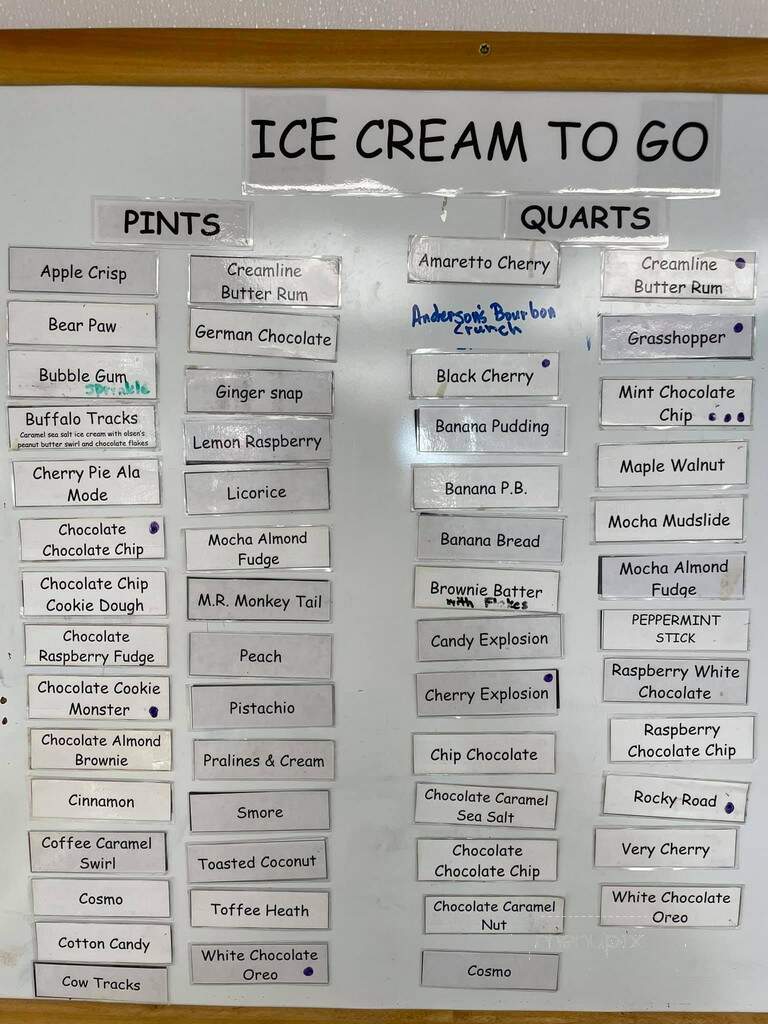 ICE CREAM TO GO
PINTS
Apple Crisp
Bear Paw
Bubble Gum
Sprinkle
Buffalo Tracks
Caramel sea salt ice cream with olsen's
peanut butter swirl and chocolate flakes
Cherry Pie Ala
Mode
Chocolate
Chocolate Chip
Chocolate Chip
Cookie Dough
Chocolate
Raspberry Fudge
Chocolate Cookie
Monster
Chocolate Almond
Brownie
Cinnamon
Coffee Caramel
Swirl
Cosmo
Cotton Candy
Cow Tracks
Creamline
Butter Rum
German Chocolate
Ginger snap
Lemon Raspberry
Licorice
Mocha Almond
Fudge
M.R. Monkey Tail
Peach
Pistachio
Pralines & Cream
Smore
Toasted Coconut
Toffee Heath
White Chocolate
Oreo
QUARTS
Amaretto Cherry
Anderson's Bourbon
Crunch
Black Cherry
Banana Pudding
Banana P.B.
Banana Bread
Brownie Batter
with Flakes
Candy Explosion
Cherry Explosion
Chip Chocolate
Chocolate Caramel
Sea Salt
Chocolate
Chocolate Chip
Chocolate Caramel
Nut
Cosmo
Creamline
Butter Rum
Grasshopper
Mint Chocolate
Chip
Maple Walnut
Mocha Mudslide
Mocha Almond
Fudge
PEPPERMINT
STICK
Raspberry White
Chocolate
Raspberry
Chocolate Chip
Rocky Road
Very Cherry
White Chocolate
Oreo
menupix